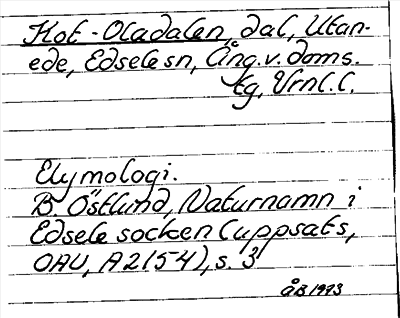 Kot-Oladalen, dal, Utan-
ede, Edsele sn, Ång.v. doms.
tg, Vrnl. L.
Etymologi.
B. Östlund, Naturnamn i
Edsele socken (uppsats,
OAU, A2154), s. 3
ÅB 1993